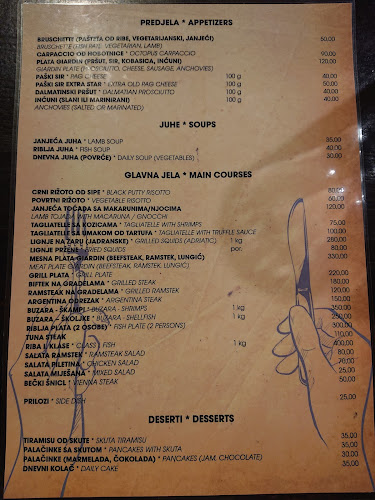 PREDJELA * APPETIZERS
BRUSCHETTE (PAŠTETA OD RIBE, VEGETARIJANSKI, JANJEĆI) 60,00
BRUSCHETTE (FISH PATE, VEGETARIAN, LAMB)
CARPACCIO OD HOBOTNICE * OCTOPUS CARPACCIO 90,00
PLATA GIARDIN (PRŠUT, SIR, KOBASICA, INĆUNI) 120,00
GIARDIN PLATE (PROSCIUTTO, CHEESE, SAUSAGE, ANCHOVIES)
PAŠKI SIR * PAG CHEESE 100 g 40,00
PAŠKI SIR EXTRA STAR * EXTRA OLD PAG CHEESE 100 g 50,00
DALMATINSKI PRŠUT * DALMATIAN PROSCIUTTO 100 g 40,00
INĆUNI (SLANI ILI MARINIRANI) 100 g 40,00
ANCHOVIES (SALTED OR MARINATED)
JUHE * SOUPS
JANJEĆA JUHA * LAMB SOUP 35,00
RIBLJA JUHA * FISH SOUP 40,00
DNEVNA JUHA (POVRĆE) * DAILY SOUP (VEGETABLES) 30,00
GLAVNA JELA * MAIN COURSES
CRNI RIŽOTO OD SIPE * BLACK PUTTY RISOTTO 80,00
POVRTNI RIŽOTO * VEGETABLE RISOTTO
JANJEĆA TOĆADA SA MAKARUNIMA/NJOCIMA
LAMB TOJADA WITH MACARUNA / GNOCCHI
TAGLIATELLE SA KOZICAMA * TAGLIATELLE WITH SHRIMPS
TAGLIATELLE SA UMAKOM OD TARTUFA * TAGLIATELLE WITH TRUFFLE SAUCE
LIGNJE NA ŽARU (JADRANSKE) * GRILLED SQUIDS (ADRIATIC) 1 kg
LIGNJE PRŽENE * FRIED SQUIDS por.
MESNA PLATA GIARDIN (BEEFSTEAK, RAMSTEK, LUNGIĆ)
MEAT PLATE GIARDIN (BEEFSTEAK, RAMSTEK, LUNGIĆ)
GRILL PLATA * GRILL PLATE
BIFTEK NA GRADELAMA * GRILLED STEAK
RAMSTEAK NA GRADELAMA * GRILLED RAMSTEK
ARGENTINA ODREZAK * ARGENTINA STEAK
BUZARA - ŠKAMPI * BUZARA - SHRIMPS 1 kg
BUZARA - ŠKOLJKE * BUZARA - SHELLFISH 1 kg
RIBLJA PLATA (2 OSOBE) * FISH PLATE (2 PERSONS)
TUNA STEAK
RIBA I. KLASE * CLASS I. FISH 1 kg
SALATA RAMSTEK * RAMSTEAK SALAD
SALATA PILETINA * CHICKEN SALAD
SALATA MIJEŠANA * MIXED SALAD
BEČKI ŠNICL * VIENNA STEAK
PRILOZI * SIDE DISH 25,00
DESERTI * DESSERTS
TIRAMISU OD SKUTE * SKUTA TIRAMISU 35,00
PALAČINKE SA SKUTOM * PANCAKES WITH SKUTA 35,00
PALAČINKE (MARMELADA, ČOKOLADA) * PANCAKES (JAM, CHOCOLATE) 30,00
DNEVNI KOLAČ * DAILY CAKE 35,00